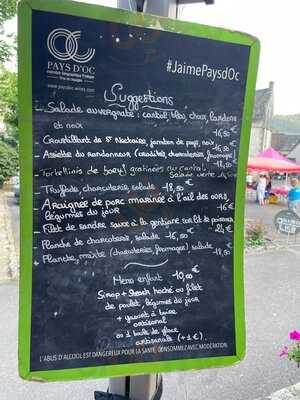 PAYS D'OC
Indication Géographique Protégée
www.paysdoc-wines.com
#JaimePaysdOc
Suggestions
- Salade auvergnate : cantal, bleu, choux, lardons
et noix - 16,50 €
- Croustillant de St Nectaire, jambon de pays, noix - 16,50 €
- Assiette du randonneur (crudités, charcuteries, fromages) - 18,50 €
- Tortellinis de boeuf gratinées au cantal, Salade verte
- Truffade, charcuterie, salade - 18,50 €
- Araignée de porc marinée à l'ail des ours, - 16 €
légumes du jour
- Filet de sandre sauce à la gentiane sur lit de poireaux - 24 €
- Planche de charcuterie, salade - 16,50 €
- Planche mixte (charcuteries, fromages) salade - 18,50 €
Menu enfant - 10,00 €
Sirop + Steack haché ou filet
de poulet, légumes du jour
+ yaourt à boire
artisanal
ou 1 boule de glace
artisanale (+ 1 €).
L'ABUS D'ALCOOL EST DANGEREUX POUR LA SANTÉ. CONSOMMEZ AVEC MODÉRATION.